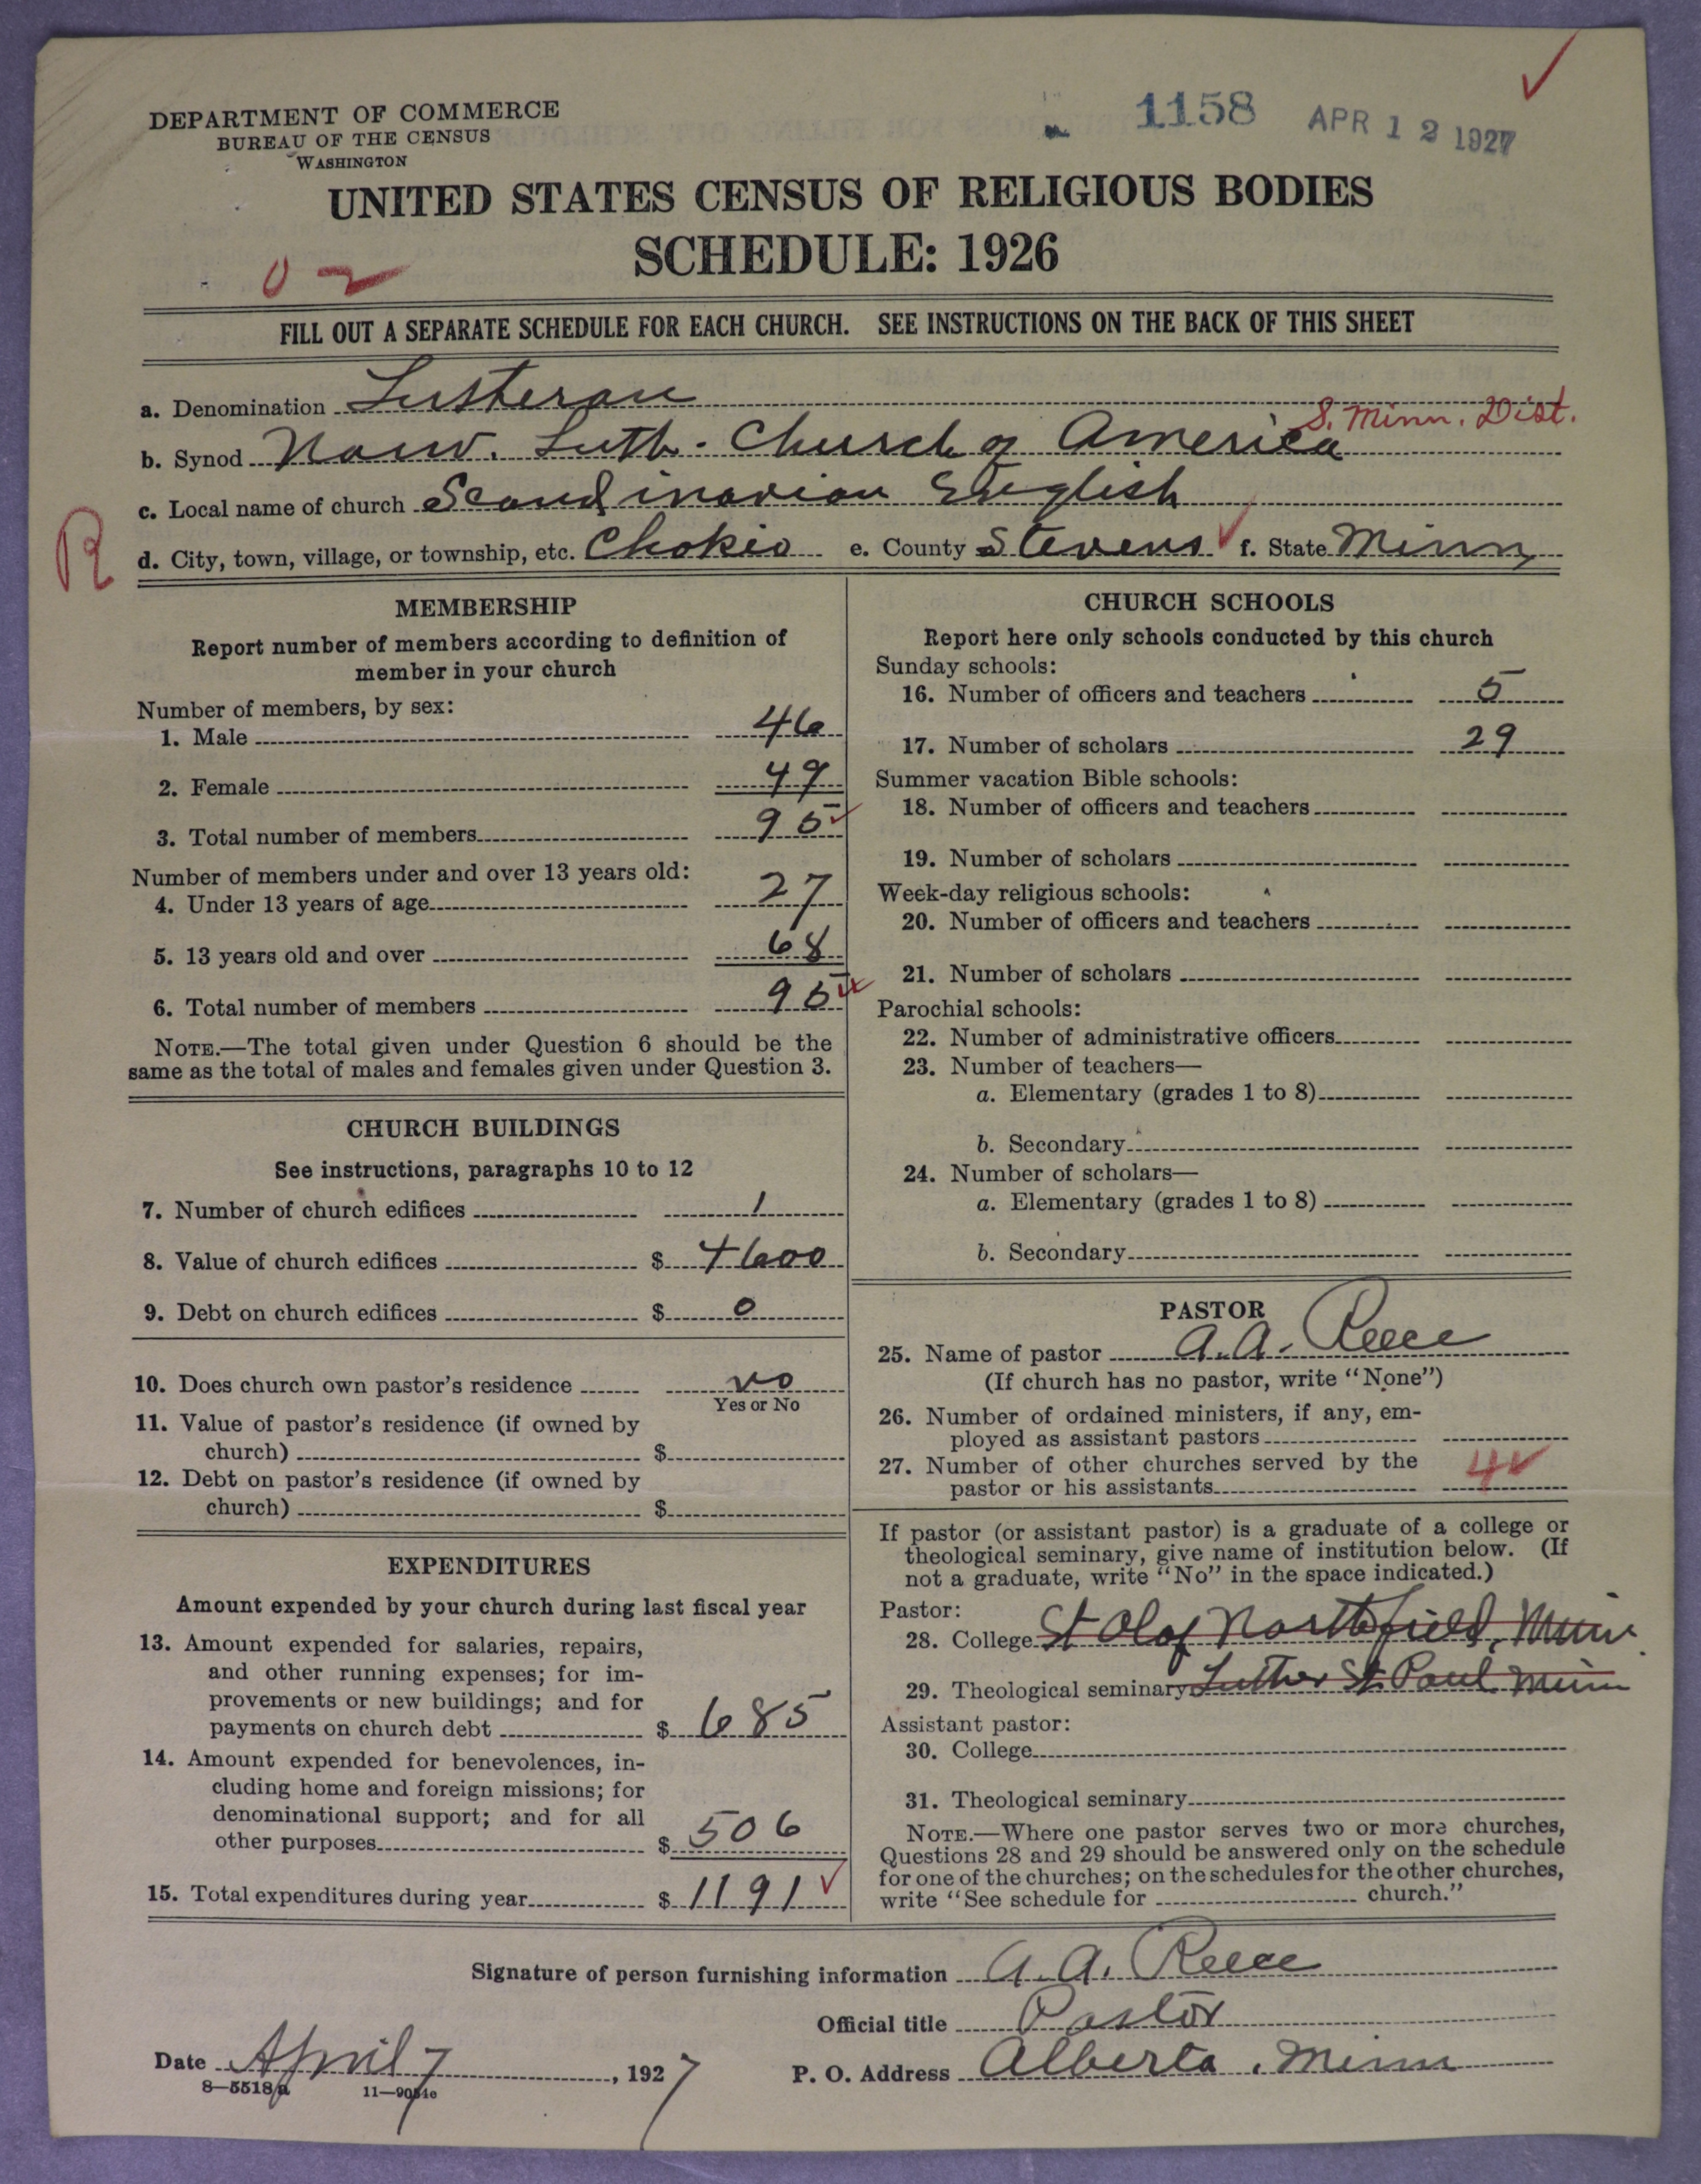 DEPARTMENT OF COMMERCE
BUREAU OF THE CENSUS
WASHINGTON
1158 APR 12 1927
UNITED STATES CENSUS OF RELIGIOUS BODIES
SCHEDULE: 1926
FILL OUT A SEPARATE SCHEDULE FOR EACH CHURCH. SEE INSTRUCTIONS ON THE BACK OF THIS SHEET
a. Denomination Lutheran
S. Minn. Dist.
b. Synod Norw. Luth. Church of America
c. Local name of church Scandinavian English
R
d. City, town, village, or township, etc. Chokio e. County Stevens f. State Minn
MEMBERSHIP
Report number of members according to definition of
member in your church
Number of members, by sex:
1. Male 46
2. Female 49
3. Total number of members 95
Number of members under and over 13 years old:
4. Under 13 years of age 27
5. 13 years old and over 68
6. Total number of members 95
NOTE.—The total given under Question 6 should be the
same as the total of males and females given under Question 3.
CHURCH BUILDINGS
See instructions, paragraphs 10 to 12
7. Number of church edifices 1
8. Value of church edifices $ 4600
9. Debt on church edifices $ 0
10. Does church own pastor's residence no
Yes or No
11. Value of pastor's residence (if owned by
church) $
12. Debt on pastor's residence (if owned by
church) $
EXPENDITURES
Amount expended by your church during last fiscal year
13. Amount expended for salaries, repairs,
and other running expenses; for im-
provements or new buildings; and for
payments on church debt $ 685
14. Amount expended for benevolences, in-
cluding home and foreign missions; for
denominational support; and for all
other purposes $ 506
15. Total expenditures during year $ 1191
CHURCH SCHOOLS
Report here only schools conducted by this church
Sunday schools:
16. Number of officers and teachers 5
17. Number of scholars 29
Summer vacation Bible schools:
18. Number of officers and teachers
19. Number of scholars
Week-day religious schools:
20. Number of officers and teachers
21. Number of scholars
Parochial schools:
22. Number of administrative officers
23. Number of teachers—
a. Elementary (grades 1 to 8)
b. Secondary
24. Number of scholars—
a. Elementary (grades 1 to 8)
b. Secondary
PASTOR
25. Name of pastor A. A. Reece
(If church has no pastor, write "None")
26. Number of ordained ministers, if any, em-
ployed as assistant pastors
27. Number of other churches served by the
pastor or his assistants 4
If pastor (or assistant pastor) is a graduate of a college or
theological seminary, give name of institution below. (If
not a graduate, write "No" in the space indicated.)
Pastor:
28. College St Olaf Northfield, Minn
29. Theological seminary Luther St. Paul Minn
Assistant pastor:
30. College
31. Theological seminary
NOTE.—Where one pastor serves two or more churches,
Questions 28 and 29 should be answered only on the schedule
for one of the churches; on the schedules for the other churches,
write "See schedule for church."
Signature of person furnishing information A. A. Reece
Official title Pastor
Date April 7, 1927 P. O. Address Alberta, Minn
8—5518a